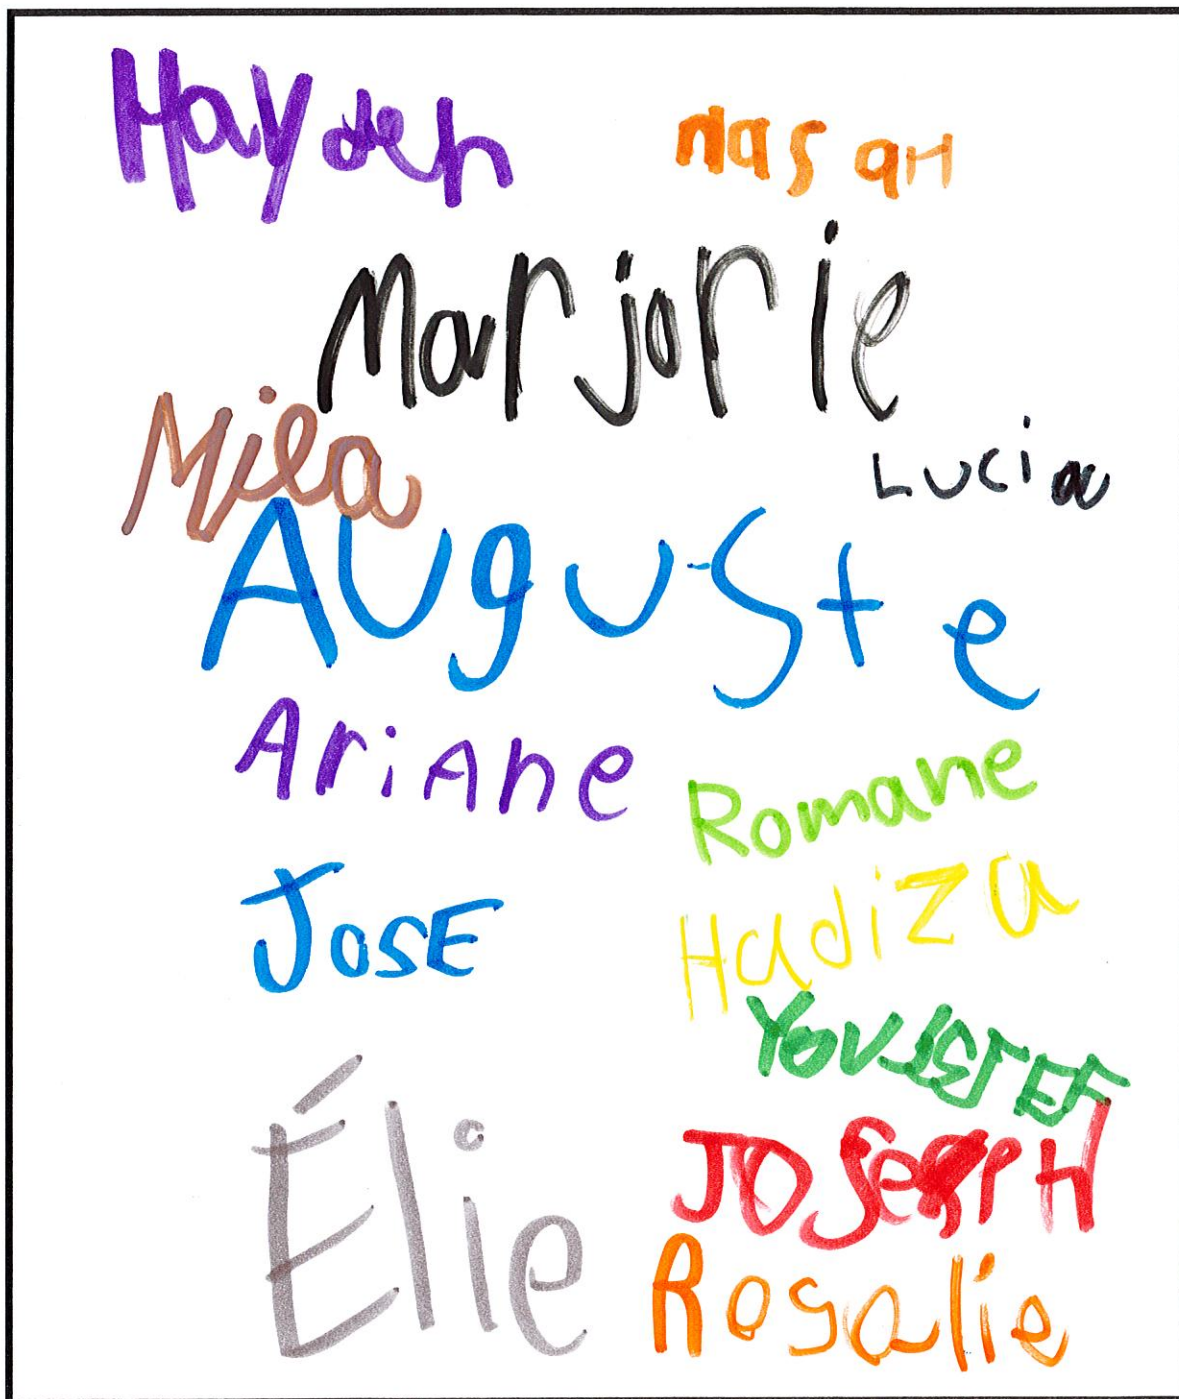 Hayden
nasan
Marjorie
Mila
Lucia
Auguste
AriAne
Romane
JosE
Hadiza
Élie
JOSePH
Rosalie